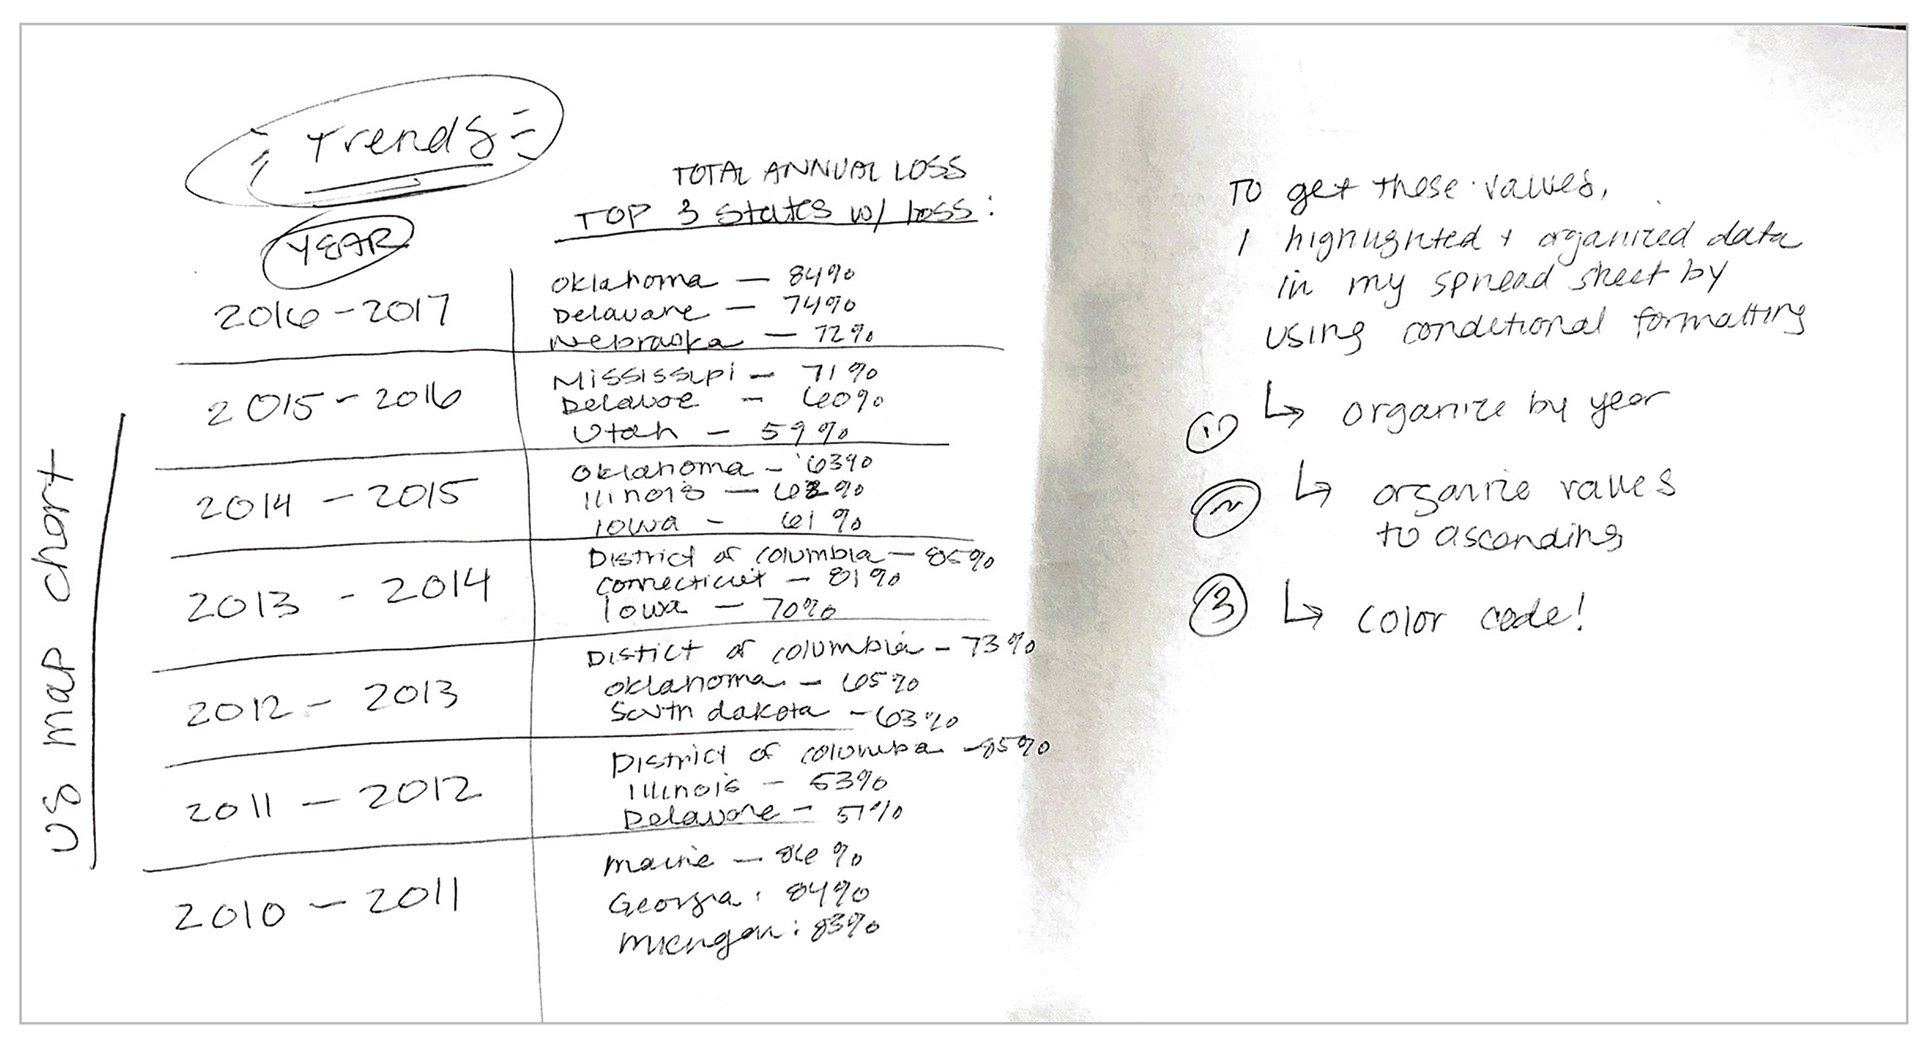 Trends
YEAR
TOTAL ANNUAL LOSS
TOP 3 states w/ loss:
2016 - 2017
Oklahoma — 84%
Delaware — 74%
Nebraska — 72%
2015 - 2016
Mississipi — 71%
Delavoe - 60%
Utah - 59%
2014 - 2015
Oklahoma - 63%
Ilinois — 62%
Iowa - 61%
2013 - 2014
District of columbia — 85%
Connecticut - 81%
Iowa — 70%
2012 - 2013
Distict of columbia - 73%
Oklahoma - 65%
South dakota - 63%
2011 - 2012
District of columba - 85%
Illinois - 53%
Delaware - 51%
2010 - 2011
Maine — 86%
Georgia: 84%
Michigan: 83%
US map chart
To get these values,
I highlighted + organized data
in my spread sheet by
using conditional formatting
1 ↳ organize by year
2 ↳ organize values
to ascending
3 ↳ color code!